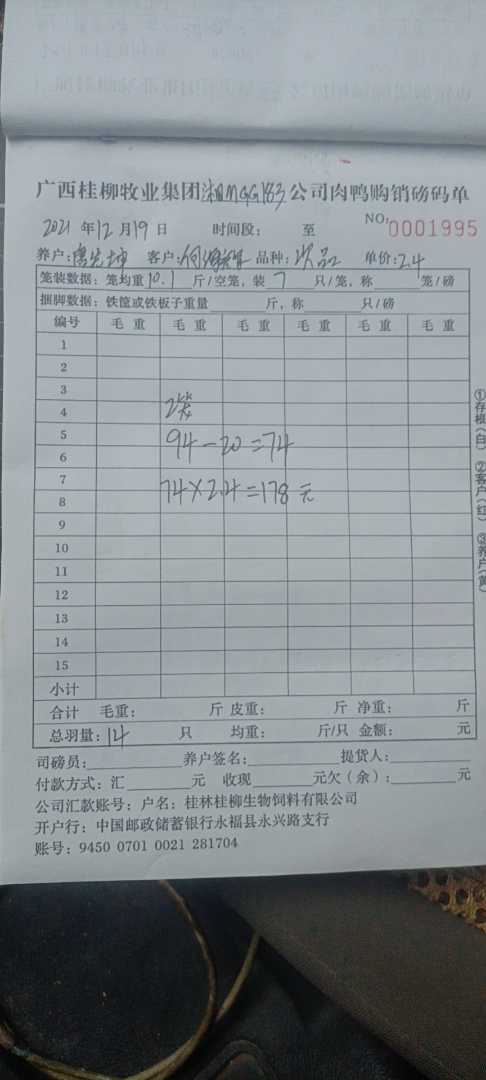 广西桂柳牧业集团湘MGG183公司肉鸭购销磅码单
2021年12月19日 时间段: 至 NO: 0001995
养户: 客户:何 品种:次品 单价:2.4
笼装数据: 笼均重10.1斤/空笼, 装7只/笼, 称 笼/磅
捆脚数据: 铁筐或铁板子重量 斤, 称 只/磅
编号 毛重 毛重 毛重 毛重 毛重 毛重
1
2
3
4 2笼
5
94-20=74
6
7
74×2.4=178元
8
9
10
11
12
13
14
15
小计
合计 毛重: 斤 皮重: 斤 净重: 斤
总羽量:14 只 均重: 斤/只 金额: 元
司磅员: 养户签名: 提货人:
付款方式: 汇 元 收现 元欠(余): 元
公司汇款账号: 户名: 桂林桂柳生物饲料有限公司
开户行: 中国邮政储蓄银行永福县永兴路支行
账号: 9450 0701 0021 281704
①存根(白) ②客户(红) ③养户(黄)